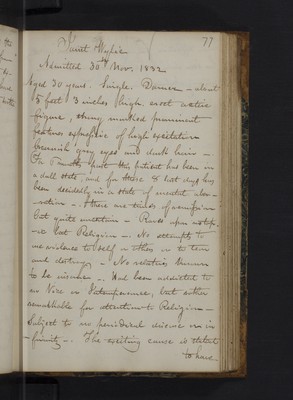 77
Janet Wylie
Admitted 30th Nov. 1832
Aged 30 years. Single. Downer - about
5 feet 3 inches high, erect active
figure, strong marked prominent
features expressive of high excitation
greenish grey eyes and dark hair -
For 7 months past this patient has been in
a dull state and for these 5 last days has
been decidedly in a state of mental alien-
-ation - There are trends of
but quite - Raves upon
Religion - No attempts to
use violence to self or others, or to tear
and destroy - No relatives known
to be insane - Had been addicted to
no Vice or Intemperance, but rather
remarkable for attention to Religion -
Subject to no periodical disease or in-
-firmity - The exciting cause is stated
to have